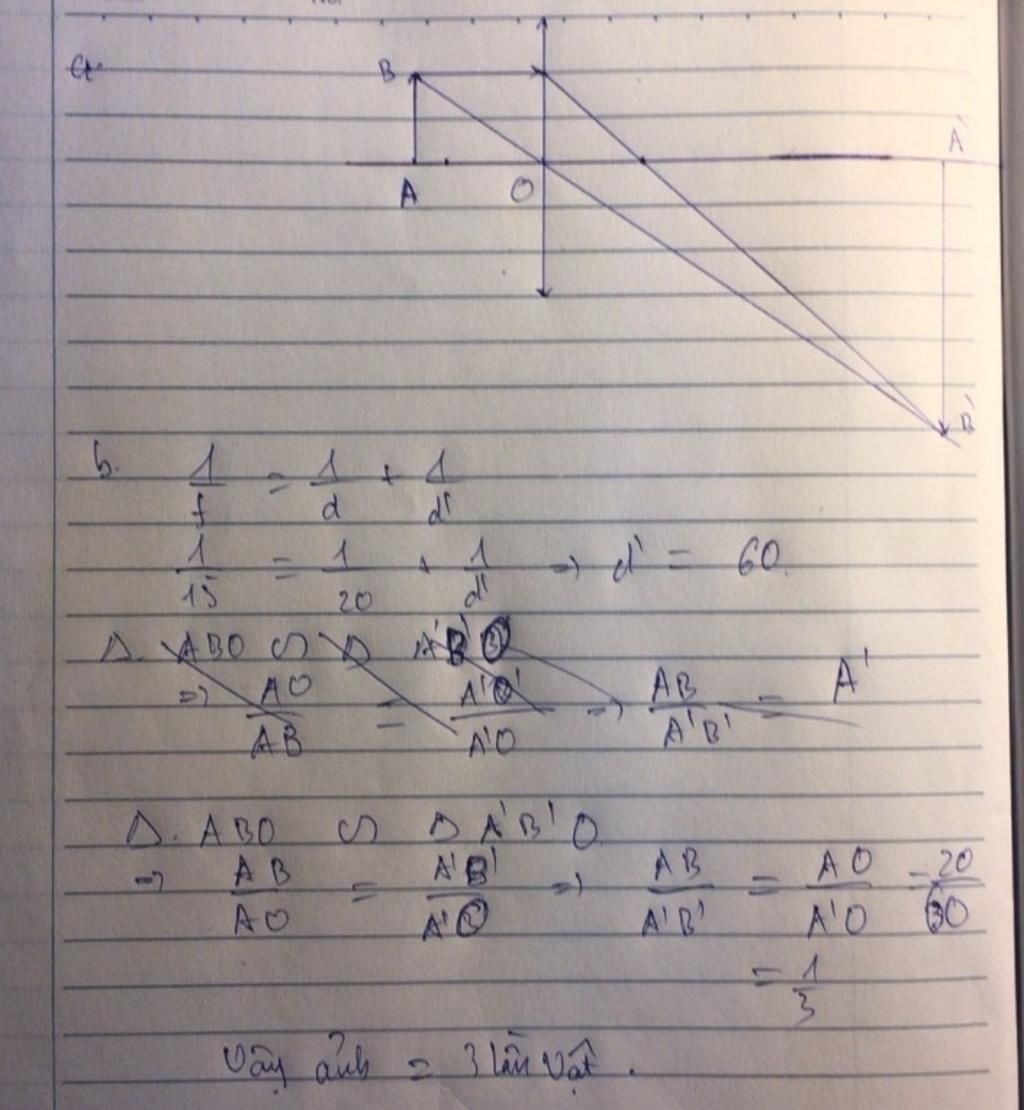 a.
B
A'
A O
B'
b. 1/f = 1/d + 1/d'
1/15 = 1/20 + 1/d' => d' = 60.
Δ. ABO ∽ Δ A'B'O
=> AO/AB = A'O'/A'O => AB/A'B' = A'
Δ. ABO ∽ Δ A'B'O
=> AB/AO = A'B'/A'O => AB/A'B' = AO/A'O = 20/60
= 1/3
Vậy ảnh = 3 lần vật.